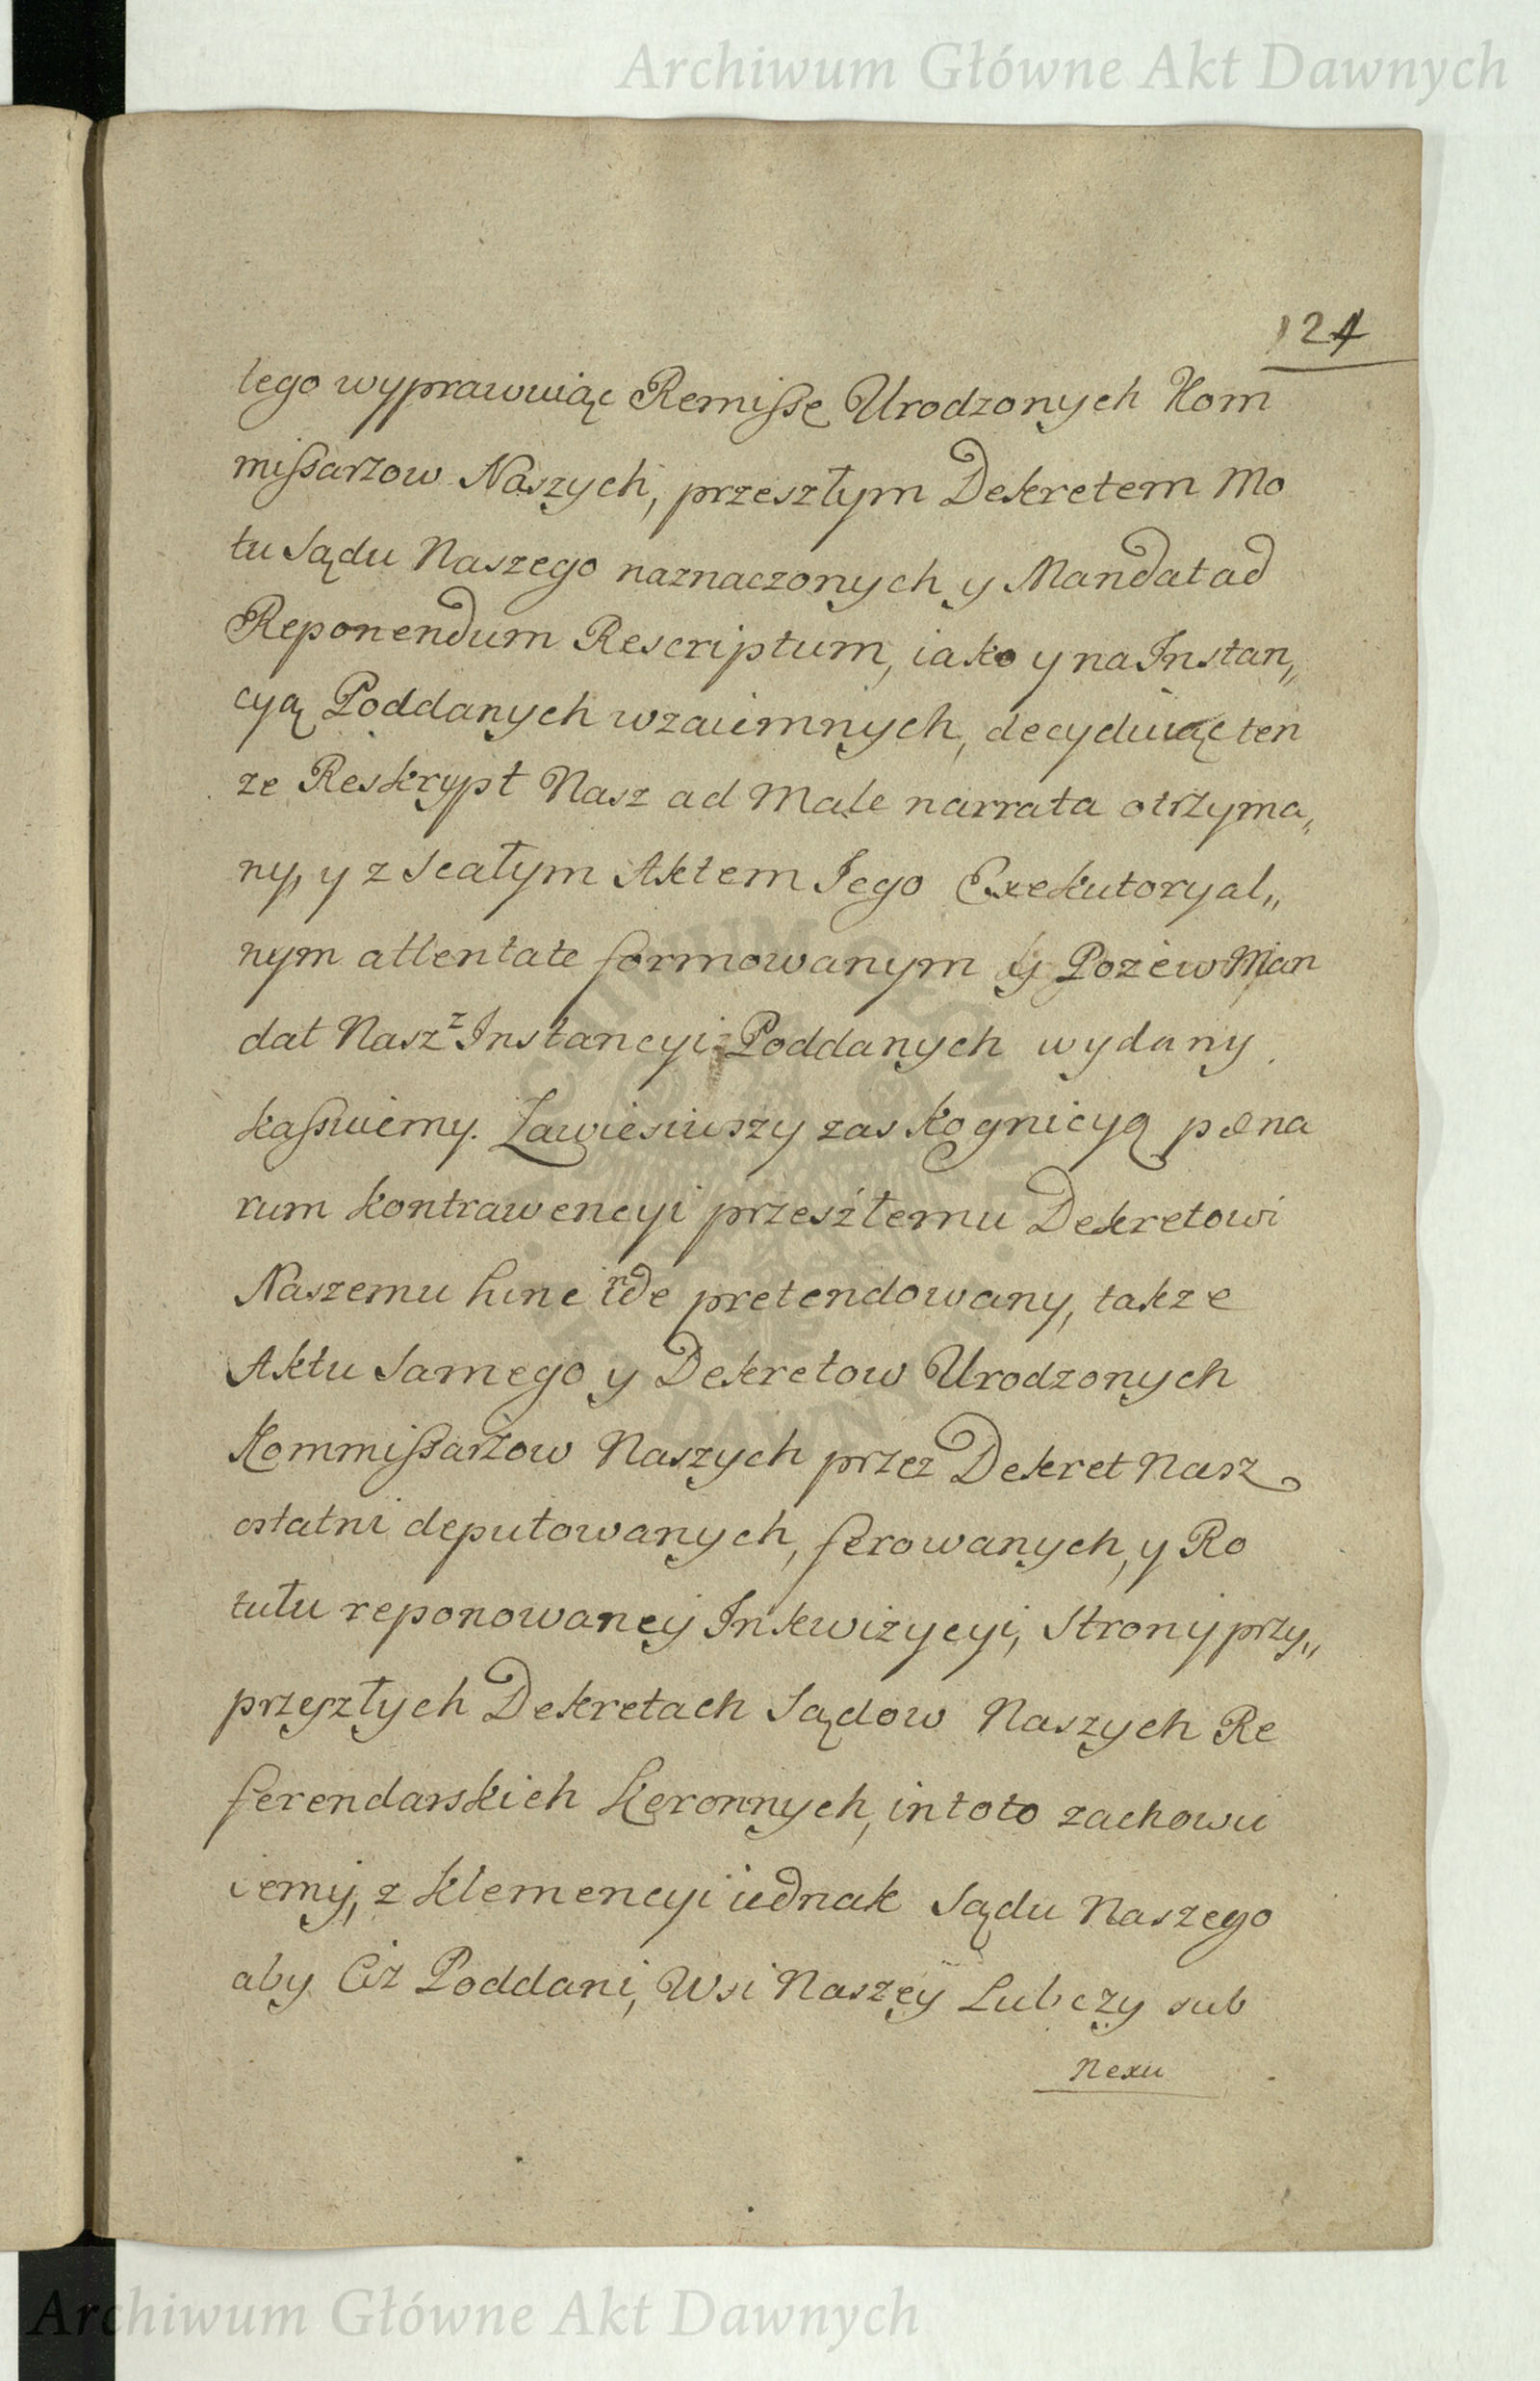 Archiwum Główne Akt Dawnych
124
tego wyprawuiąc Remissę Urodzonych Kom
missarzow Naszych, przeszłym Dekretem Mo
tu Sądu Naszego naznaczonych y Mandat ad
Reponendum Rescriptum, iako y na Instan„
cyą Poddanych wzaiemnych, decyduiąc ten
że Reskrypt Nasz ad Male narrata otrzyma„
ny, y z scałym Aktem Iego Exekutoryal„
nym attentate formowanym y Pozew Man
dat Nasz z Instancyi Poddanych wydany
kassuiemy. Zawiesiwszy zas kognicyą pœna
rum kontrawencyi przeszłemu Dekretowi
Naszemu hinc inde pretendowany, takze
Aktu samego y Dekretow Urodzonych
Kommissarzow Naszych przez Dekret Nasz
ostatni deputowanych, ferowanych, y Ro
tułu reponowaney Inkwizycyi, Strony przy„
przeszłych Dekretach Sądow Naszych Re
ferendarskich Koronnych, in toto zachowu
iemy, z klemencyi iednak Sądu Naszego
aby Ciż Poddani, Wsi Naszey Lubczy sub
Nexu
Archiwum Główne Akt Dawnych